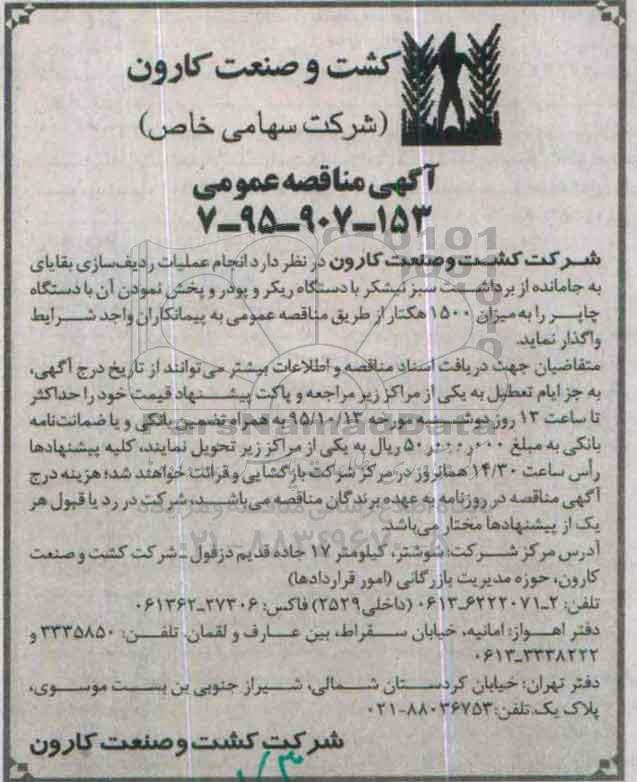 کشت و صنعت کارون
(شرکت سهامی خاص)
آگهی مناقصه عمومی
۱۵۳-۹۰۷-۹۵-۷
شرکت کشت و صنعت کارون در نظر دارد انجام عملیات ردیف‌سازی بقایای
به جامانده از برداشت سبز نیشکر با دستگاه ریکر و پودر و پخش نمودن آن با دستگاه
چاپر را به میزان ۱۵۰۰ هکتار از طریق مناقصه عمومی به پیمانکاران واجد شرایط
واگذار نماید.
متقاضیان جهت دریافت اسناد مناقصه و اطلاعات بیشتر می‌توانند از تاریخ درج آگهی،
به جز ایام تعطیل به یکی از مراکز زیر مراجعه و پاکت پیشنهاد قیمت خود را حداکثر
تا ساعت ۱۳ روز دوشنبه مورخه ۹۵/۱۰/۱۳ به همراه تضمین بانکی و یا ضمانت‌نامه
بانکی به مبلغ ۵۰٫۰۰۰٫۰۰۰ ریال به یکی از مراکز زیر تحویل نمایند، کلیه پیشنهادها
رأس ساعت ۱۴/۳۰ همانروز در مرکز شرکت بازگشایی و قرائت خواهند شد؛ هزینه درج
آگهی مناقصه در روزنامه به عهده برندگان مناقصه می‌باشد، شرکت در رد یا قبول هر
یک از پیشنهادها مختار می‌باشد.
آدرس مرکز شرکت: شوشتر، کیلومتر ۱۷ جاده قدیم دزفول - شرکت کشت و صنعت
کارون، حوزه مدیریت بازرگانی (امور قراردادها)
تلفن: ۲-۶۲۲۲۰۷۱-۰۶۱۳ (داخلی ۲۵۲۹) فاکس: ۲۷۳۰۶-۰۶۱۳۶۲
دفتر اهواز: امانیه، خیابان سقراط، بین عارف و لقمان. تلفن: ۳۳۳۵۸۵۰ و
۳۳۳۸۲۲۲-۰۶۱۳
دفتر تهران: خیابان کردستان شمالی، شیراز جنوبی بن بست موسوی،
پلاک یک. تلفن: ۸۸۰۳۶۷۵۳-۰۲۱
شرکت کشت و صنعت کارون